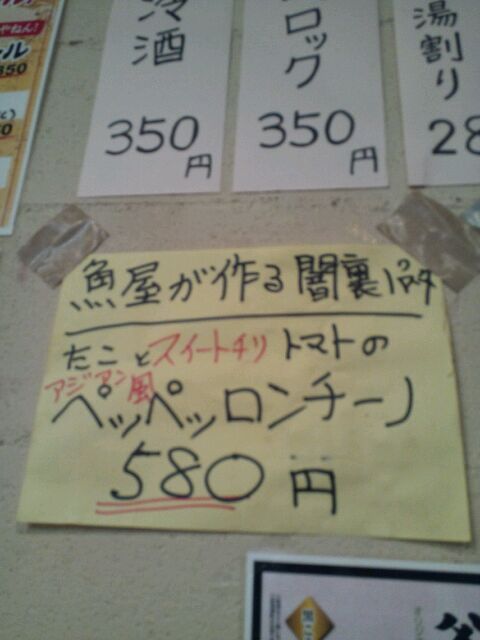 冷酒
350
円
ロック
350
円
湯割り
28
やねん!
ル
350
魚屋が作る闇裏パスタ
たことスイートチリトマトの
アジアン風
ペッペッロンチーノ
580円